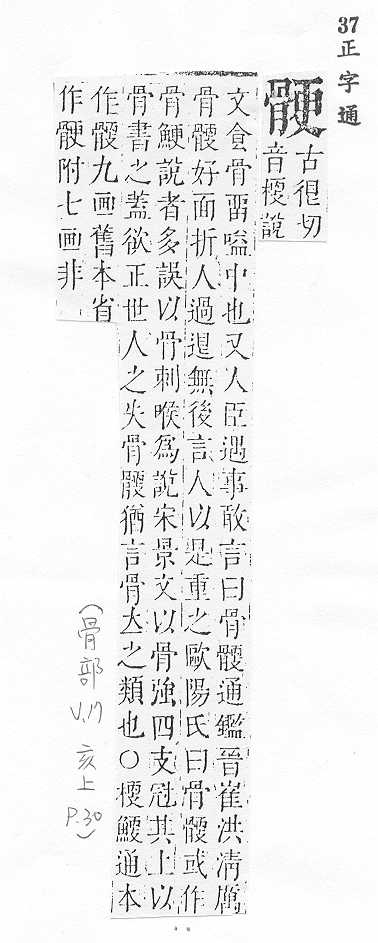 37正字通
骾
古很切
音㮴說
文食骨畱嗌中也又人臣遇事敢言曰骨䯁通鑑晉崔洪清厲
骨䯁好面折人過退無後言人以是重之歐陽氏曰骨䯁或作
骨鯁說者多誤以骨刺喉為說宋景文以骨強四支冠其上以
骨書之蓋欲正世人之失骨䯁猶言骨𠀤之類也○㮴鯾通本
作䯁九画舊本省
作骾附七画非
(骨部
V.17
亥上
P.30)